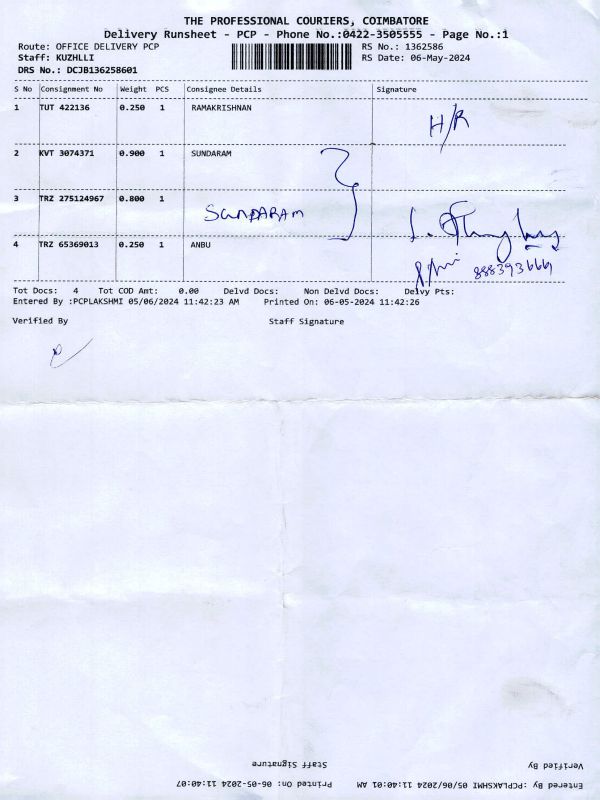 THE PROFESSIONAL COURIERS, COIMBATORE
Delivery Runsheet - PCP - Phone No.:0422-3505555 - Page No.:1
Route: OFFICE DELIVERY PCP RS No.: 1362586
Staff: KUZHLLI RS Date: 06-May-2024
DRS No.: DCJB136258601
S No Consignment No Weight PCS Consignee Details Signature
1 TUT 422136 0.250 1 RAMAKRISHNAN
H/R
2 KVT 3074371 0.900 1 SUNDARAM
3 TRZ 275124967 0.800 1
SUNDARAM
4 TRZ 65369013 0.250 1 ANBU
Tot Docs: 4 Tot COD Amt: 0.00 Delvd Docs: Non Delvd Docs: Delvy Pts:
Entered By :PCPLAKSHMI 05/06/2024 11:42:23 AM Printed On: 06-05-2024 11:42:26
Verified By Staff Signature
Verified By Staff Signature
Entered By :PCPLAKSHMI 05/06/2024 11:40:01 AM Printed On: 06-05-2024 11:40:07